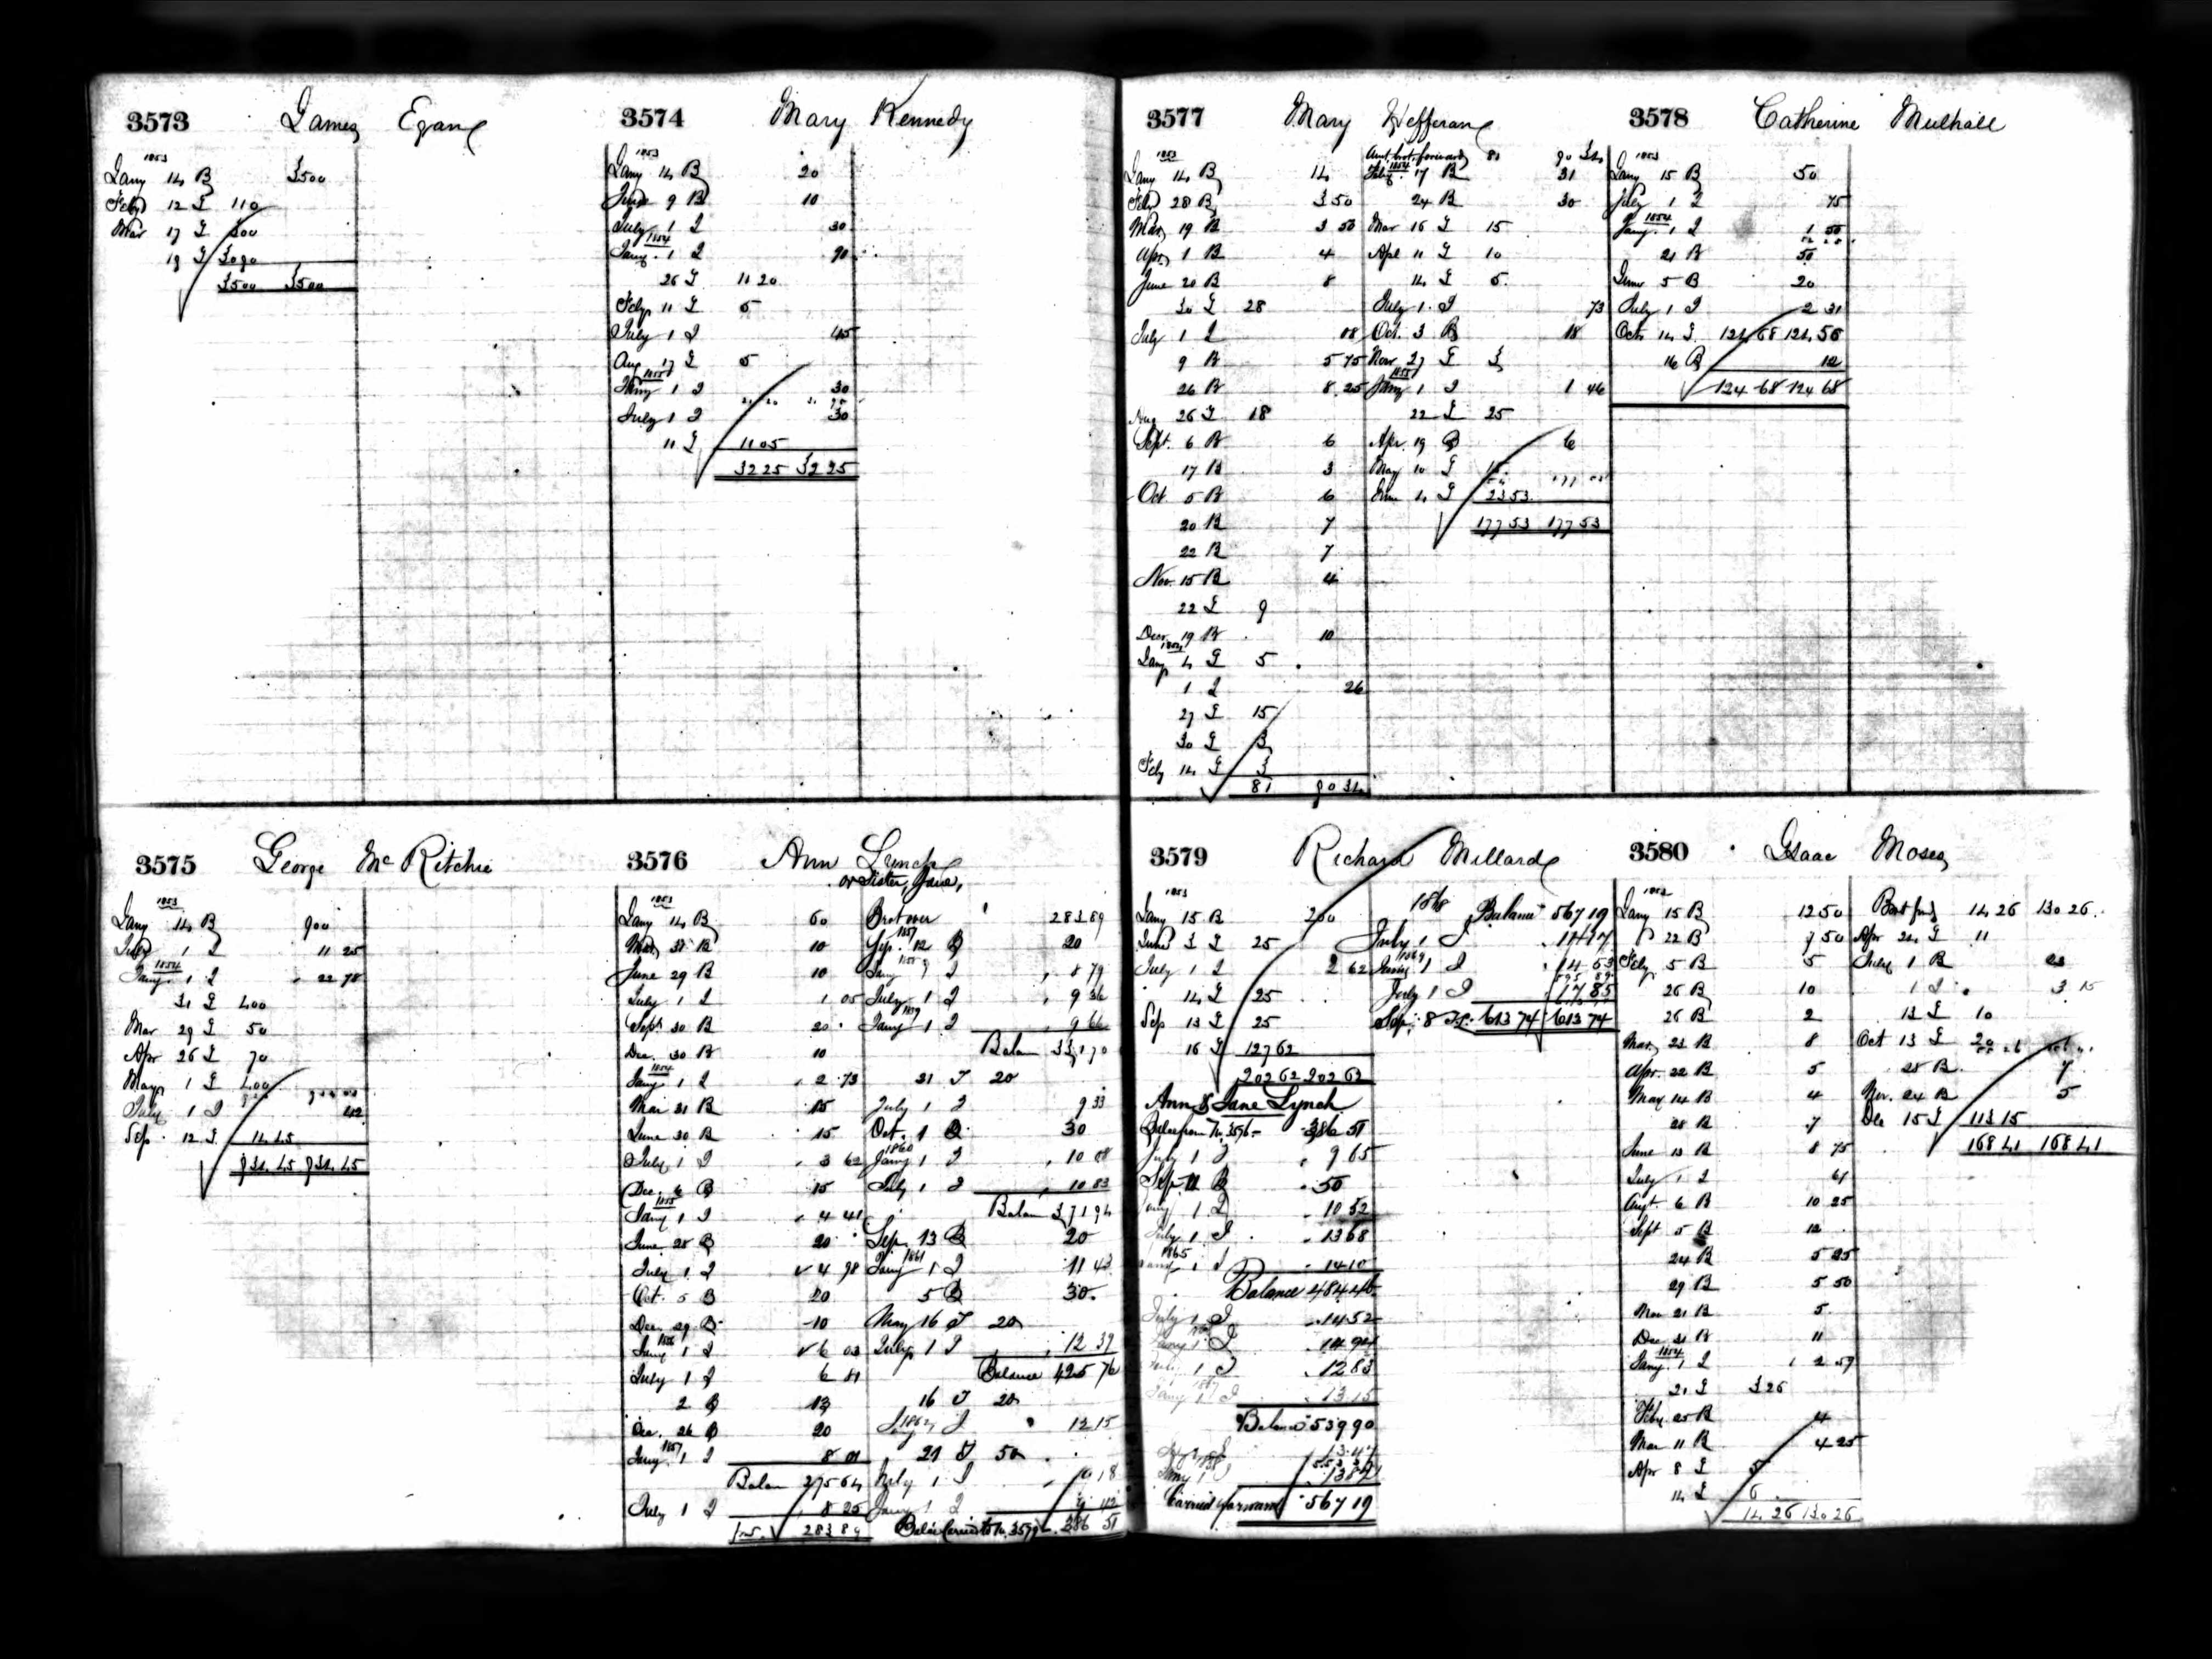 3573 James Egan
1853
Jany 14 B 3500
Feby 12 I 110
Mar 17 I 300
19 I 3090
3500 3500
3574 Mary Kennedy
1853
Jany 14 B 20
June 9 B 10
July 1 I 30
1854
Jany 1 I 90
26 I 11 20
Feby 11 I 5
July 1 I 45
Aug 17 I 5
1855
Jany 1 I 30
July 1 I 30
11 I 11 05
32 25 32 25
3575 George Mc Ritchie
1853
Jany 14 B 900
July 1 I 11 25
1854
Jany 1 I 22 78
31 I 400
Mar 29 I 50
Apr 26 I 70
May 1 I 400
July 1 I 42
Sep 12 I 14 45
934 45 934 45
3576 Ann Lynch
or Sister, Jane,
1853
Jany 14 B 60
Mar 31 B 10
June 29 B 10
July 1 I 1 05
Sept 30 B 20
Dec. 30 B 10
1854
Jany 1 I 2 73
Mar 21 B 15
June 30 B 15
July 1 I 3 62
Dec. 6 B 15
1855
Jany 1 I 4 41
June 28 B 20
July 1 I 4 98
Oct. 5 B 20
Dec. 29 B 10
1856
Jany 1 I 6 03
July 1 I 6 81
2 B 13
Dec. 26 B 20
1857
Jany 1 I 8 01
Balan 275 64
July 1 I 8 25
283 89
Brot over 283 89
1857
Sep. 12 B 20
1858
Jany 1 I 8 79
July 1 I 9 36
1859
Jany 1 I 9 66
Balan 331 70
21 I 20
July 1 I 9 33
Oct. 1 B 30
1860
Jany 1 I 10 08
July 1 I 10 83
Balan 371 94
Sep 13 B 20
1861
Jany 1 I 11 43
5 B 30
May 16 I 20
July 1 I 12 39
Balance 425 76
16 I 20
1862
Jany I 12 15
21 I 50
July 1 I 10 18
Jany 1 I
Balce Carried to No. 3579 386 51
3577 Mary Hefferan
1853
Jany 14 B 14
Feby 28 B 3 50
Mar 19 B 3 50
Apr 1 B 4
June 20 B 8
30 I 28
July 1 I 08
9 B 5 75
26 B 8 25
Aug 26 I 18
Sept. 6 B 6
17 B 3
Oct 5 B 6
20 B 7
22 B 7
Nov. 15 B 4
22 I 9
Decr 19 B 10
1854
Jany 4 I 5
1 I 26
27 I 15
30 I 3
Feby 14 I 3
81 90 34
Amt brot forward 81 90 34
1854
Feby 17 B 31
24 B 30
Mar 16 I 15
Apl 11 I 10
14 I 5
July 1 I 73
Oct. 3 B 18
Nov. 27 I 3
1855
Jany 1 I 1 46
22 I 25
Apr. 19 B 6
May 10 I 15
June 14 I 23 53
177 53 177 53
3578 Catherine Mulhall
1853
Jany 15 B 50
July 1 I 75
1854
Jany 1 I 1 50
21 B 50
June 5 B 20
July 1 I 2 31
Oct 14 I 124 68 124 56
16 B 12
124 68 124 68
3579 Richard Millard
1853
Jany 15 B 200
June 3 I 25
July 1 I 2 62
14 I 25
Sep 13 I 25
16 I 127 62
202 62 202 62
Ann & Jane Lynch
Balce from No. 3576 386 51
July 1 I 9 65
Sep. 11 B 50
Jany 1 I 10 52
July 1 I 13 68
1865
Jany 1 I 14 10
Balance 484 46
July 1 I 14 52
Jany 1 I 14 94
July 1 I 12 83
1867
Jany 1 I 13 15
Balance 539 90
July 1 I 13 47
1868
Jany 1 I 13 82
Carried forward 567 19
1868 Balance 567 19
July 1 I 14 17
1869
Jany 1 I 14 53
July 1 I 17 85
Sep. 8 I 613 74 613 74
3580 Isaac Moses
1853
Jany 15 B 12 50
22 B 7 50
Feby 5 B 5
26 B 10
26 B 2
Mar 23 B 8
Apr. 22 B 5
May 14 B 4
28 B 7
June 13 B 8 75
July 1 I 61
Augt. 6 B 10 25
Sept 5 B 12
24 B 5 25
29 B 5 50
Nov 21 B 5
Dec 31 B 11
1854
Jany 1 I 2 59
21 I 3 26
Feby 25 B 4
Mar 11 B 4 25
Apr 8 I 5
14 I 6
14 26 130 26
Brot fwd 14 26 130 26
Apr 24 I 11
July 1 B 23
1 I 3 15
13 I 10
Oct 13 I 20
28 B 7
Nov. 24 B 5
Dec 15 I 113 15
168 41 168 41